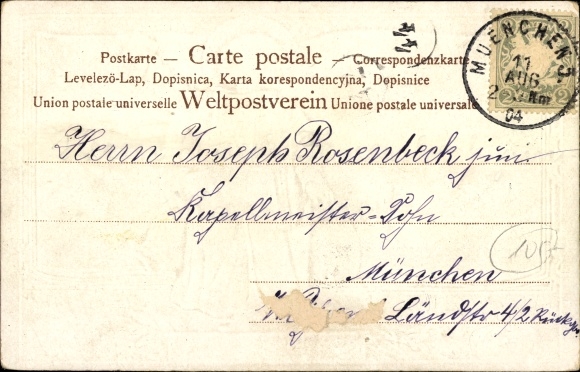 44
MUENCHEN 3
11
AUG
2 Nm
04
Postkarte — Carte postale — Correspondenzkarte
Levelezö-Lap, Dopisnica, Karta korespondencyjna, Dopisnice
Union postale universelle Weltpostverein Unione postale universale
Herrn Joseph Rosenbeck jun.
Kapellmeister-Sohn
München
Ländstr 4/2 Rückg.